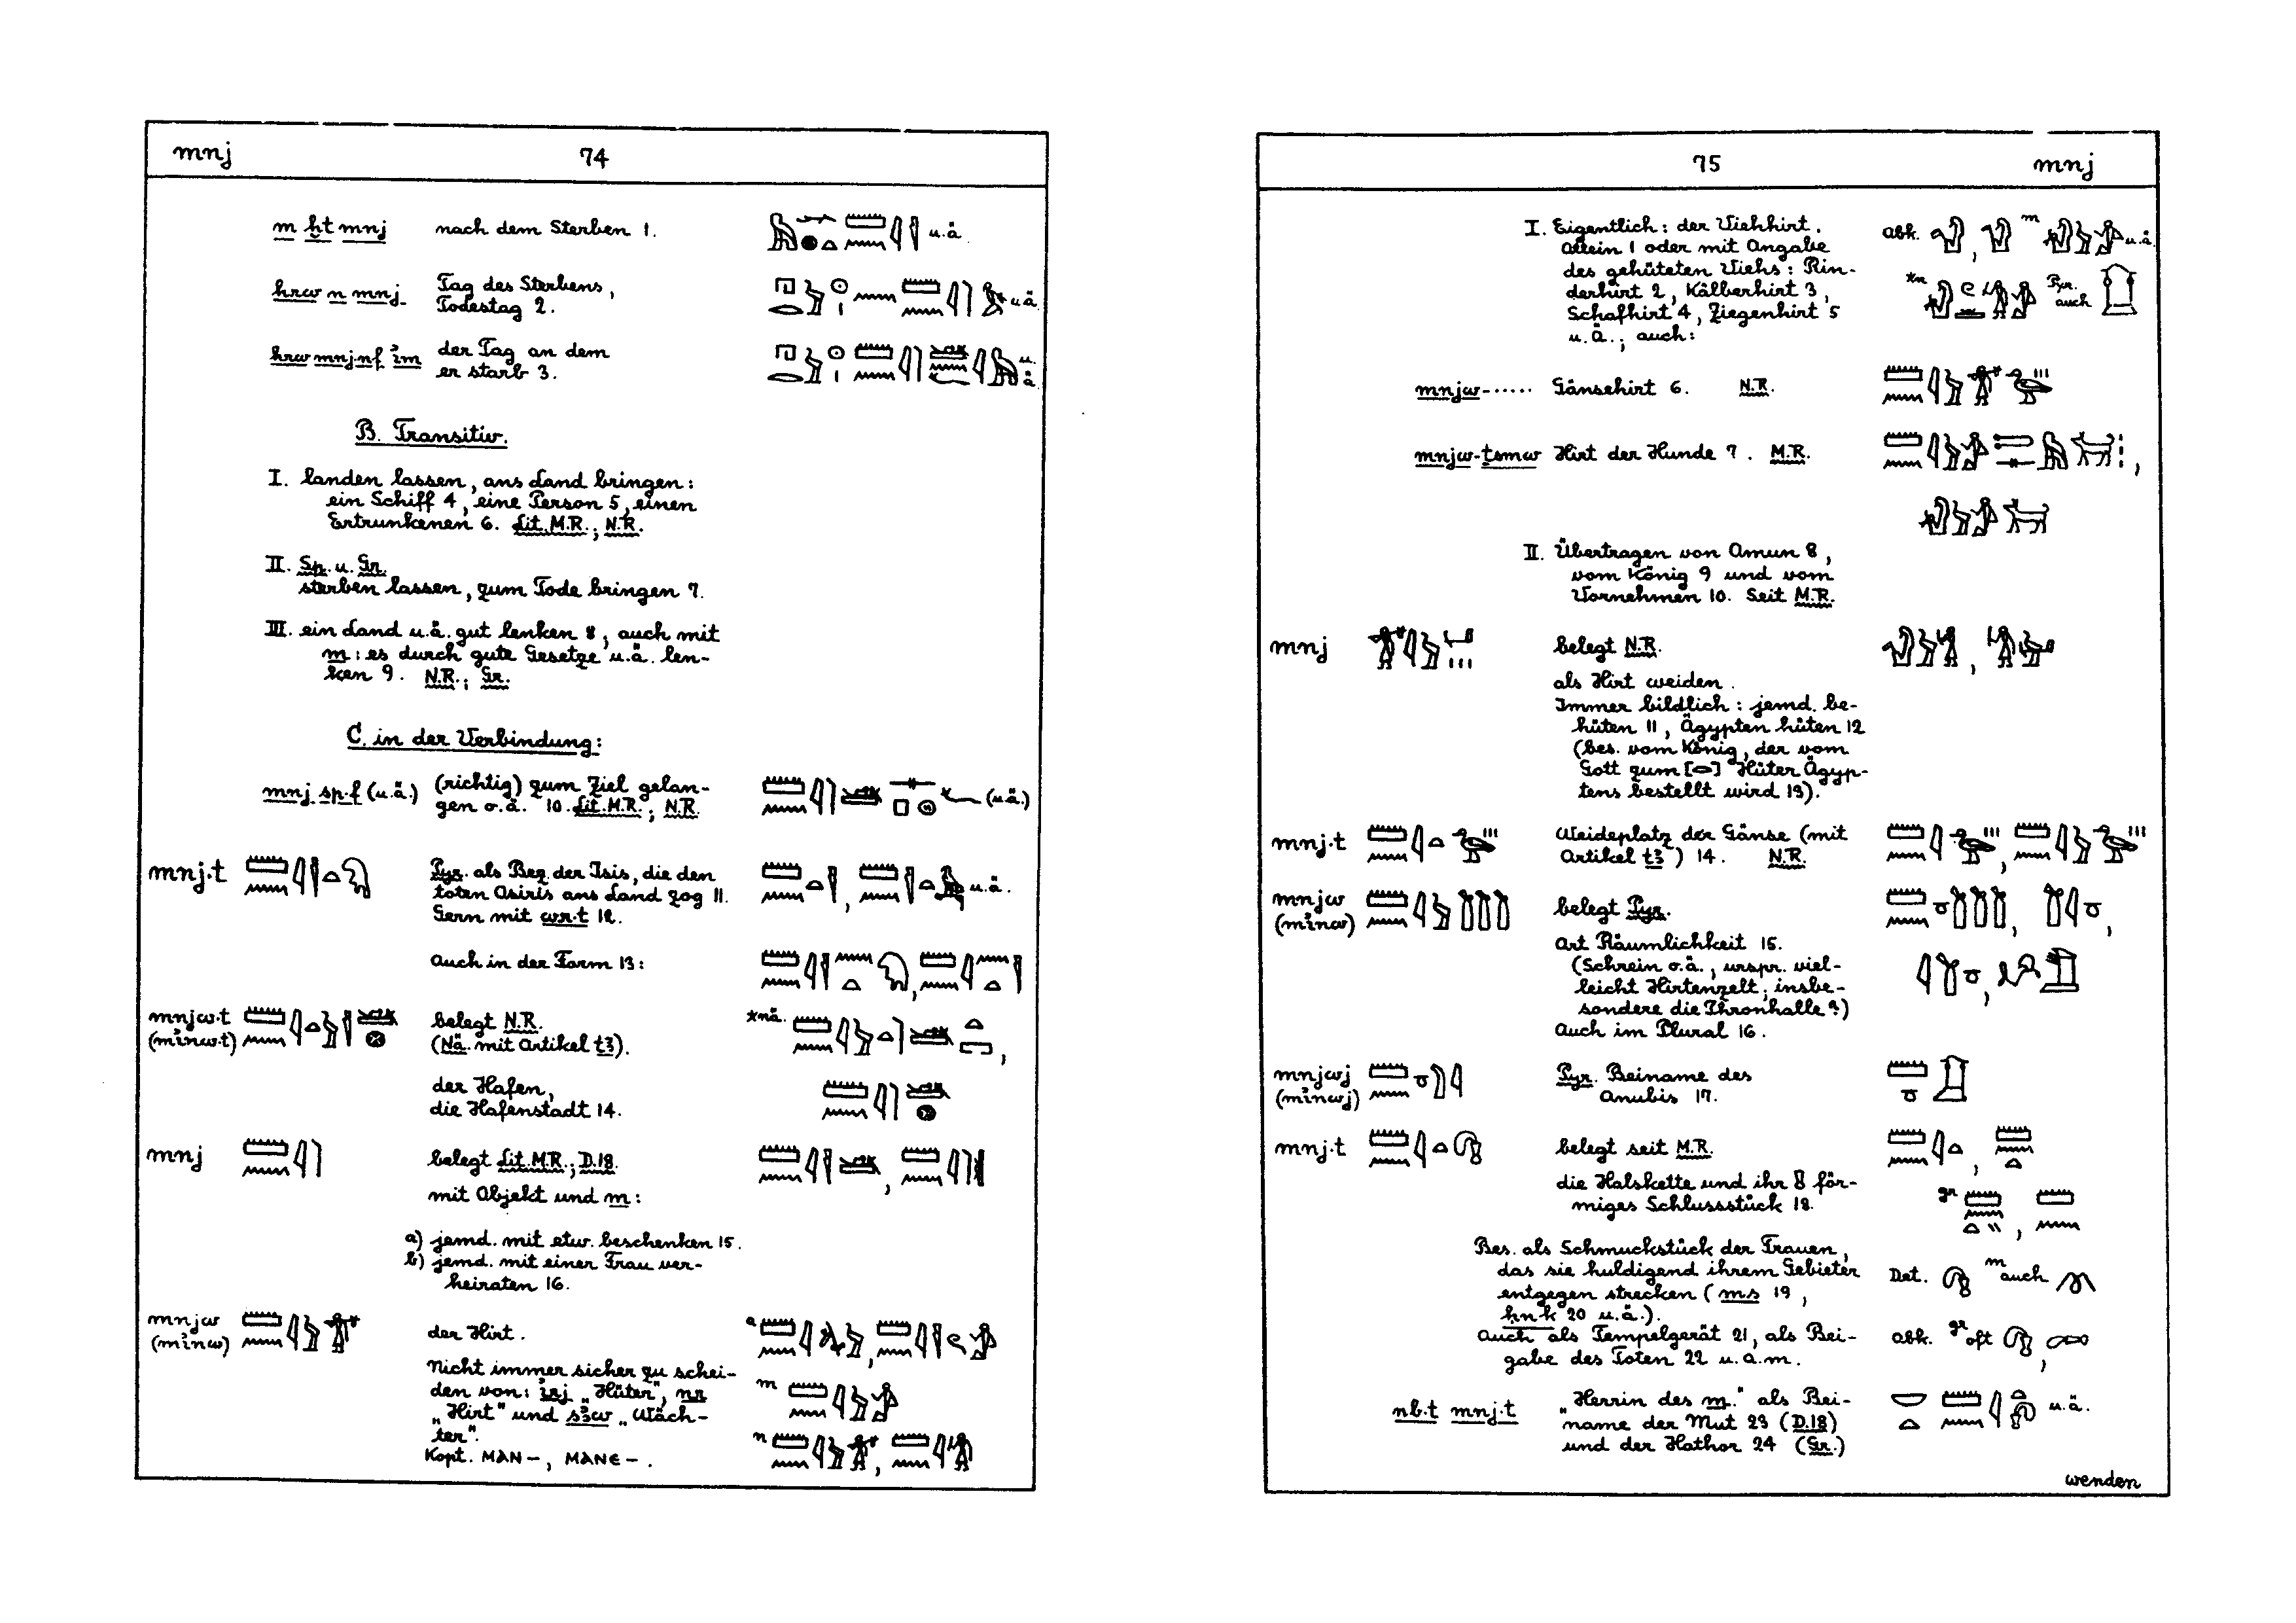 mnj 74
m ḫt mnj nach dem Sterben 1. u.ä.
hrw n mnj Tag des Sterbens, u.ä.
Todestag 2.
hrw mnj.nf im der Tag an dem u.
er starb 3. ä.
B. Transitiv.
I. landen lassen, ans Land bringen:
ein Schiff 4, eine Person 5, einen
Ertrunkenen 6. Lit. M.R.; N.R.
II. Sp. u. Gr.
sterben lassen, zum Tode bringen 7.
III. ein Land u.ä. gut lenken 8, auch mit
m: es durch gute Gesetze u.ä. len-
ken 9. N.R.; Gr.
C. in der Verbindung:
mnj sp.f (u.ä.) (richtig) zum Ziel gelan- (u.ä.)
gen o.ä. 10. Lit. M.R.; N.R.
mnj.t Pyr. als Bez. der Isis, die den
toten Osiris ans Land zog 11. , u.ä.
Gern mit wr.t 12.
Auch in der Form 13: ,
mnjw.t belegt N.R. *nä.
(minw.t) (Nä. mit Artikel tꜣ). ,
der Hafen,
die Hafenstadt 14.
mnj belegt Lit. M.R.; D.18. ,
mit Objekt und m:
a) jemd. mit etw. beschenken 15.
b) jemd. mit einer Frau ver-
heiraten 16.
mnjw der Hirt. a ,
(minw)
Nicht immer sicher zu schei-
den von: irj „Hüter“, nr m
„Hirt“ und sꜣw „Wäch-
ter“. n ,
Kopt. ⲙⲁⲛ-, ⲙⲁⲛⲉ-.
75 mnj
I. Eigentlich: der Viehhirt. abk. , m u.ä.
Allein 1 oder mit Angabe
des gehüteten Viehs: Rin- *n Pyr.
derhirt 2, Kälberhirt 3, auch
Schafhirt 4, Ziegenhirt 5
u.ä.; auch:
mnjw-...... Gänsehirt 6. N.R.
mnjw-ṯsmw Hirt der Hunde 7. M.R. ,
II. Übertragen von Amun 8,
vom König 9 und vom
Vornehmen 10. Seit M.R.
mnj belegt N.R. ,
als Hirt weiden.
Immer bildlich: jemd. be-
hüten 11, Ägypten hüten 12
(bes. vom König, der vom
Gott zum [𓂋] Hüter Ägyp-
tens bestellt wird 13).
mnj.t Weideplatz der Gänse (mit
Artikel tꜣ) 14. N.R. ,
mnjw belegt Pyr. , ,
(minw)
Art Räumlichkeit 15.
(Schrein o.ä., urspr. viel-
leicht Hirtenzelt; insbe- ,
sondere die Thronhalle?)
Auch im Plural 16.
mnjwj Pyr. Beiname des
(minwj) Anubis 17.
mnj.t belegt seit M.R. ,
die Halskette und ihr för- gr
miges Schlussstück 18. ,
Bes. als Schmuckstück der Frauen,
das sie huldigend ihrem Gebieter Det. m auch
entgegen strecken (ms 19,
ḥnk 20 u.ä.).
Auch als Tempelgerät 21, als Bei- abk. gr oft ,
gabe des Toten 22 u.a.m.
nb.t mnj.t „Herrin des m.“ als Bei- u.ä.
name der Mut 23 (D.18)
und der Hathor 24 (Gr.)
wenden